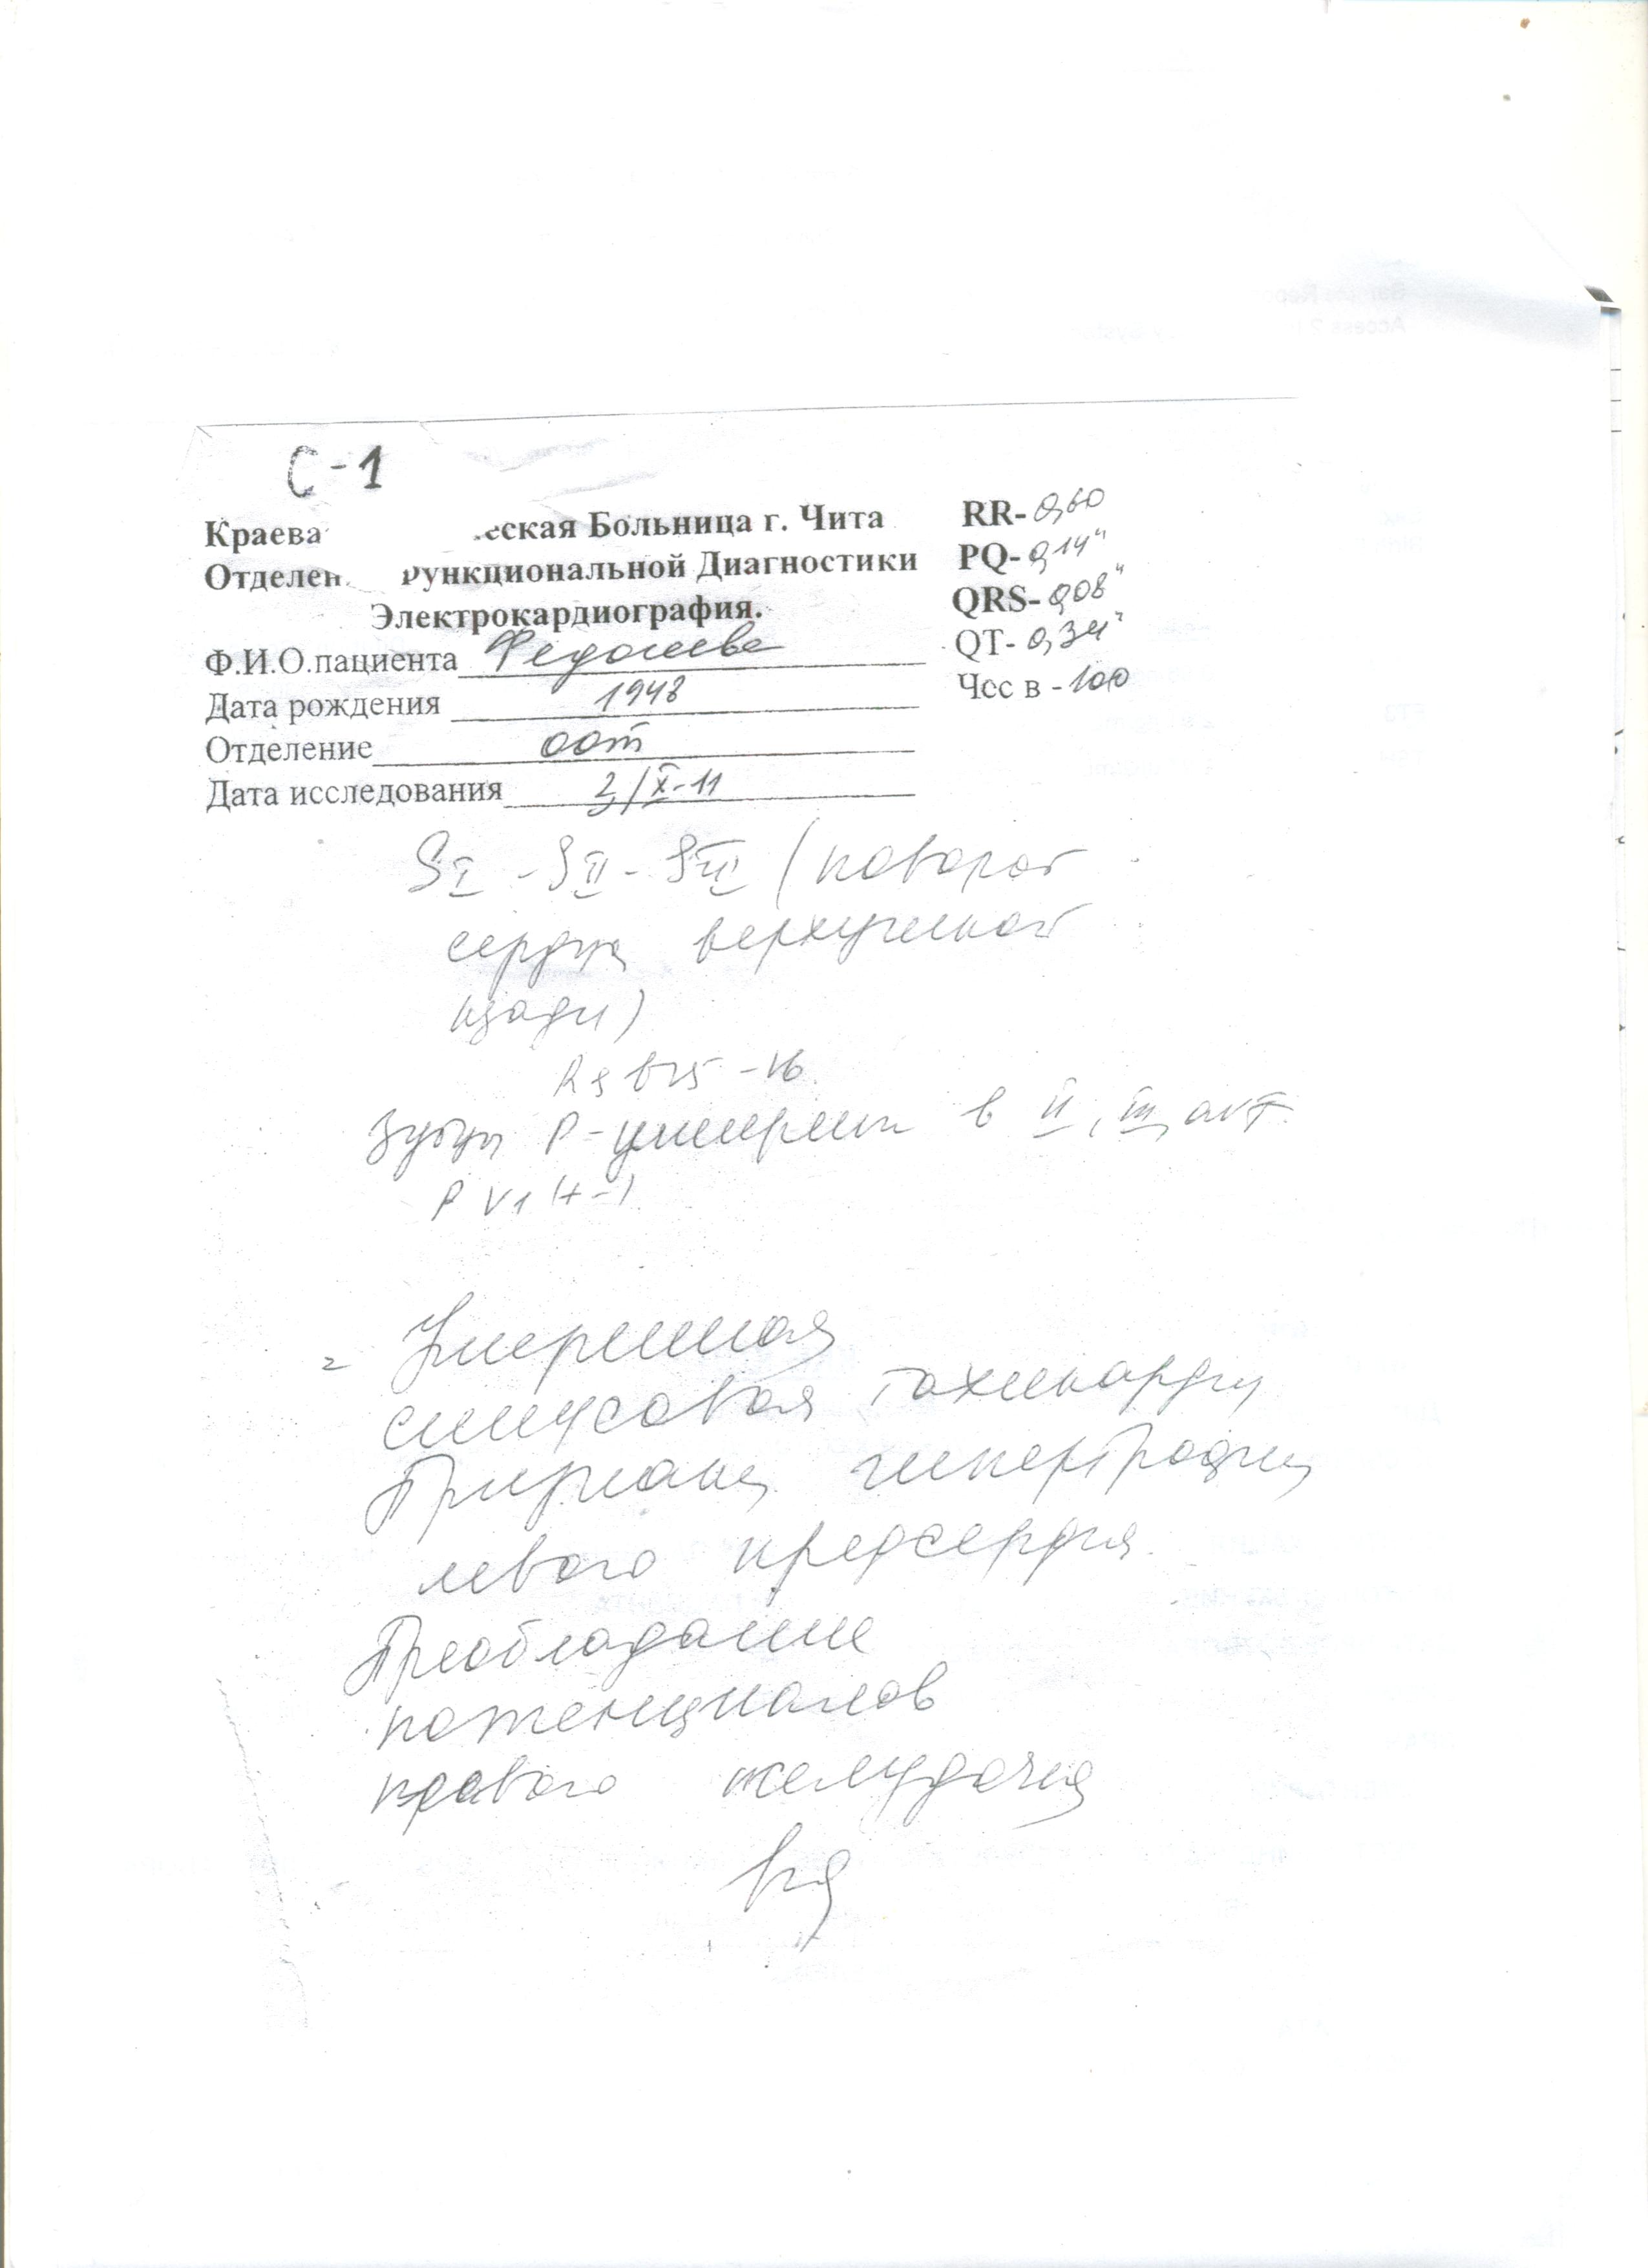 С-1
Краева еская Больница г. Чита RR- 0,60
Отделен ункциональной Диагностики PQ- 0,14"
Электрокардиография. QRS- 0,08"
Ф.И.О.пациента QT- 0,34"
Дата рождения 1948 Чсс в - 100
Отделение оот
Дата исследования 2/X-11
SI - SII - SIII (поворот
сердца верхушкой
кзади)
RS в V5 - V6
Зубцы P - уширены в II, III, avF.
P V1 (+-)
= Умеренная
синусовая тахикардия
Признаки гипертрофии
левого предсердия.
Преобладание
потенциалов
правого желудочка